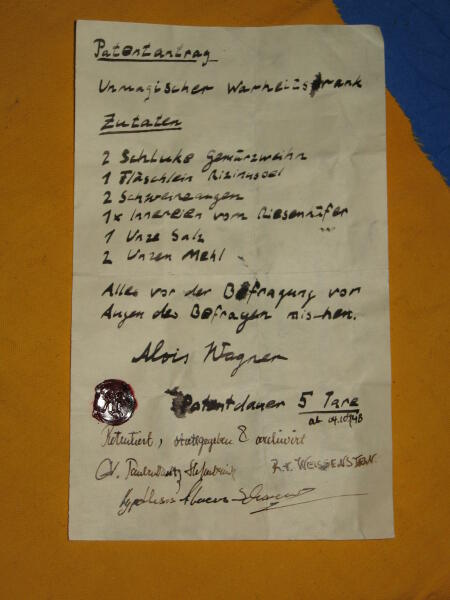 Patentantrag
Unmagischer Warheitstrank
Zutaten
2 Schlucke Gewürzweihn
1 Fläschlein Rizinusoel
2 Schweineaugen
1x Innereien vom Riesenkäfer
1 Unze Salz
2 Unzen Mehl
Alles vor der Befragung vor
Augen des Befragen mischen.
Alois Wagner
Patentdauer 5 Tare
ab
stattgegeben & archivirt
R.T. WEISSENSTEIN